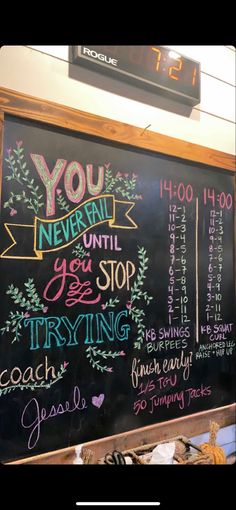 ROGUE
7:21
YOU
NEVER FAIL
UNTIL
you STOP
TRYING
Coach
Jessele
14:00
12-1
11-2
10-3
9-4
8-5
7-6
6-7
5-8
4-9
3-10
2-11
1-12
KB SWINGS
BURPEES
14:00
1-12
2-11
3-10
4-9
5-8
6-7
7-6
8-5
9-4
10-3
11-2
12-1
KB SQUAT
CURL
ANCHORED LEG
RAISE + HIP UP
finish early?
1/5 TGU
50 Jumping Jacks